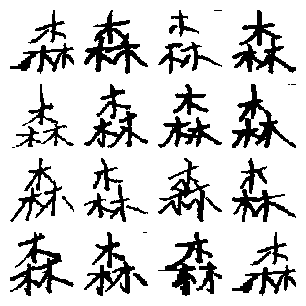 森森森森
森森森森
森森森森
森森森森